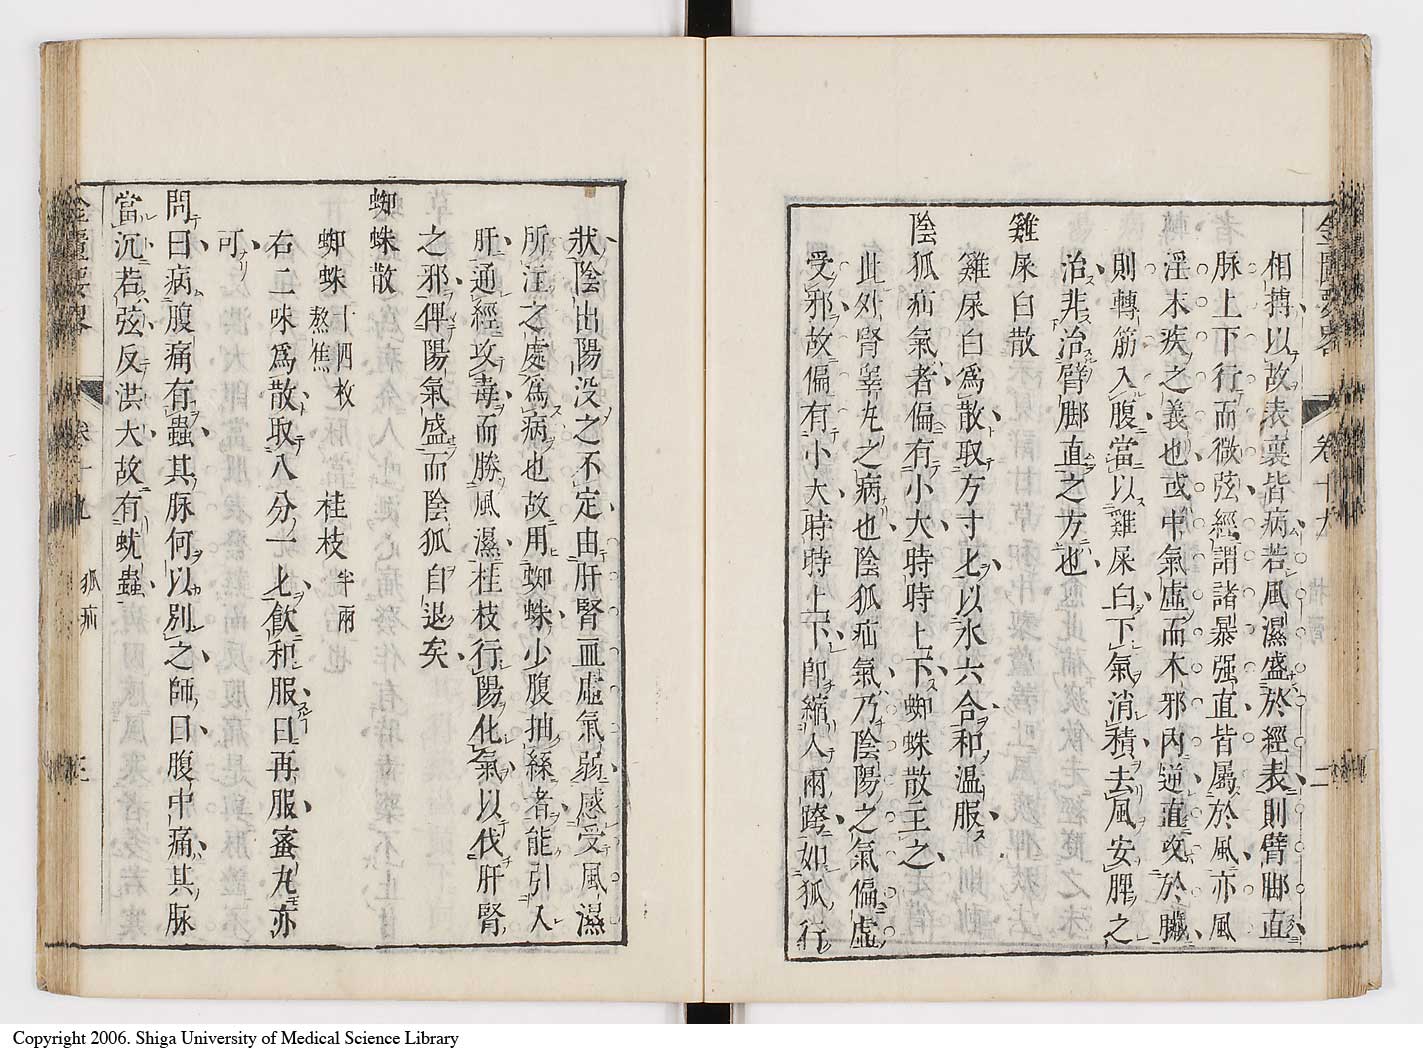 金匱要略 卷十九 二
相搏以故表裏皆病若風濕盛於經表則臂脚直
脉上下行而微弦經謂諸暴强直皆屬於風亦風
淫末疾之義也或中氣虛而木邪内逆直攻於臟
則轉筋入腹當以雞屎白下氣消積去風安脾之
治非治臂脚直之方也
雞屎白散
雞屎白爲散取方寸匕以水六合和温服
陰狐疝氣者偏有小大時時上下蜘蛛散主之
此外腎睾丸之病也陰狐疝氣乃陰陽之氣偏虛
受邪故偏有小大時時上下卽縮入兩跨如狐行
狀陰出陽没之不定由肝腎血虛氣弱感受風濕
所注之處爲病也故用蜘蛛少腹抽絲者能引入
肝通經攻毒而勝風濕桂枝行陽化氣以伐肝腎
之邪俾陽氣盛而陰狐自退矣
蜘蛛散
蜘蛛十四枚熬焦 桂枝半兩
右二味爲散取八分一匕飲和服日再服蜜丸亦
可
問曰病腹痛有蟲其脉何以别之師曰腹中痛其脉
當沉若弦反洪大故有蚘蟲
金匱要略 卷十九 狐疝 三
Copyright 2006. Shiga University of Medical Science Library